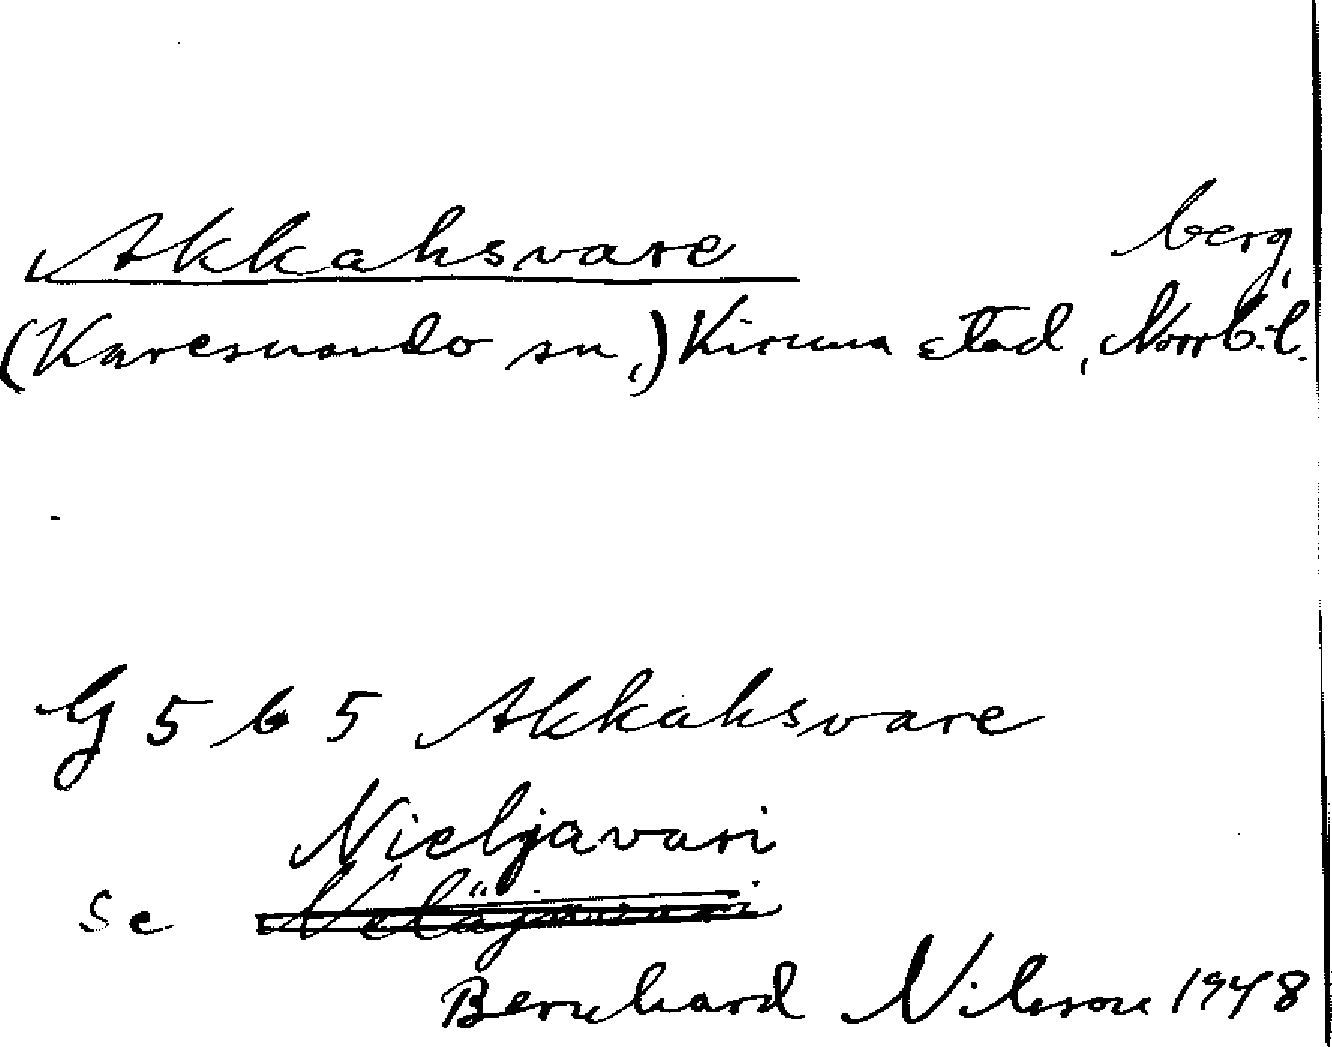 Akkahsvare berg,
(Karesuando sn,) Kiruna stad, Norrb. l.
G 5 b 5 Akkahsvare
Nieljavari
Se Neläjavaari
Bernhard Nilsson 1948